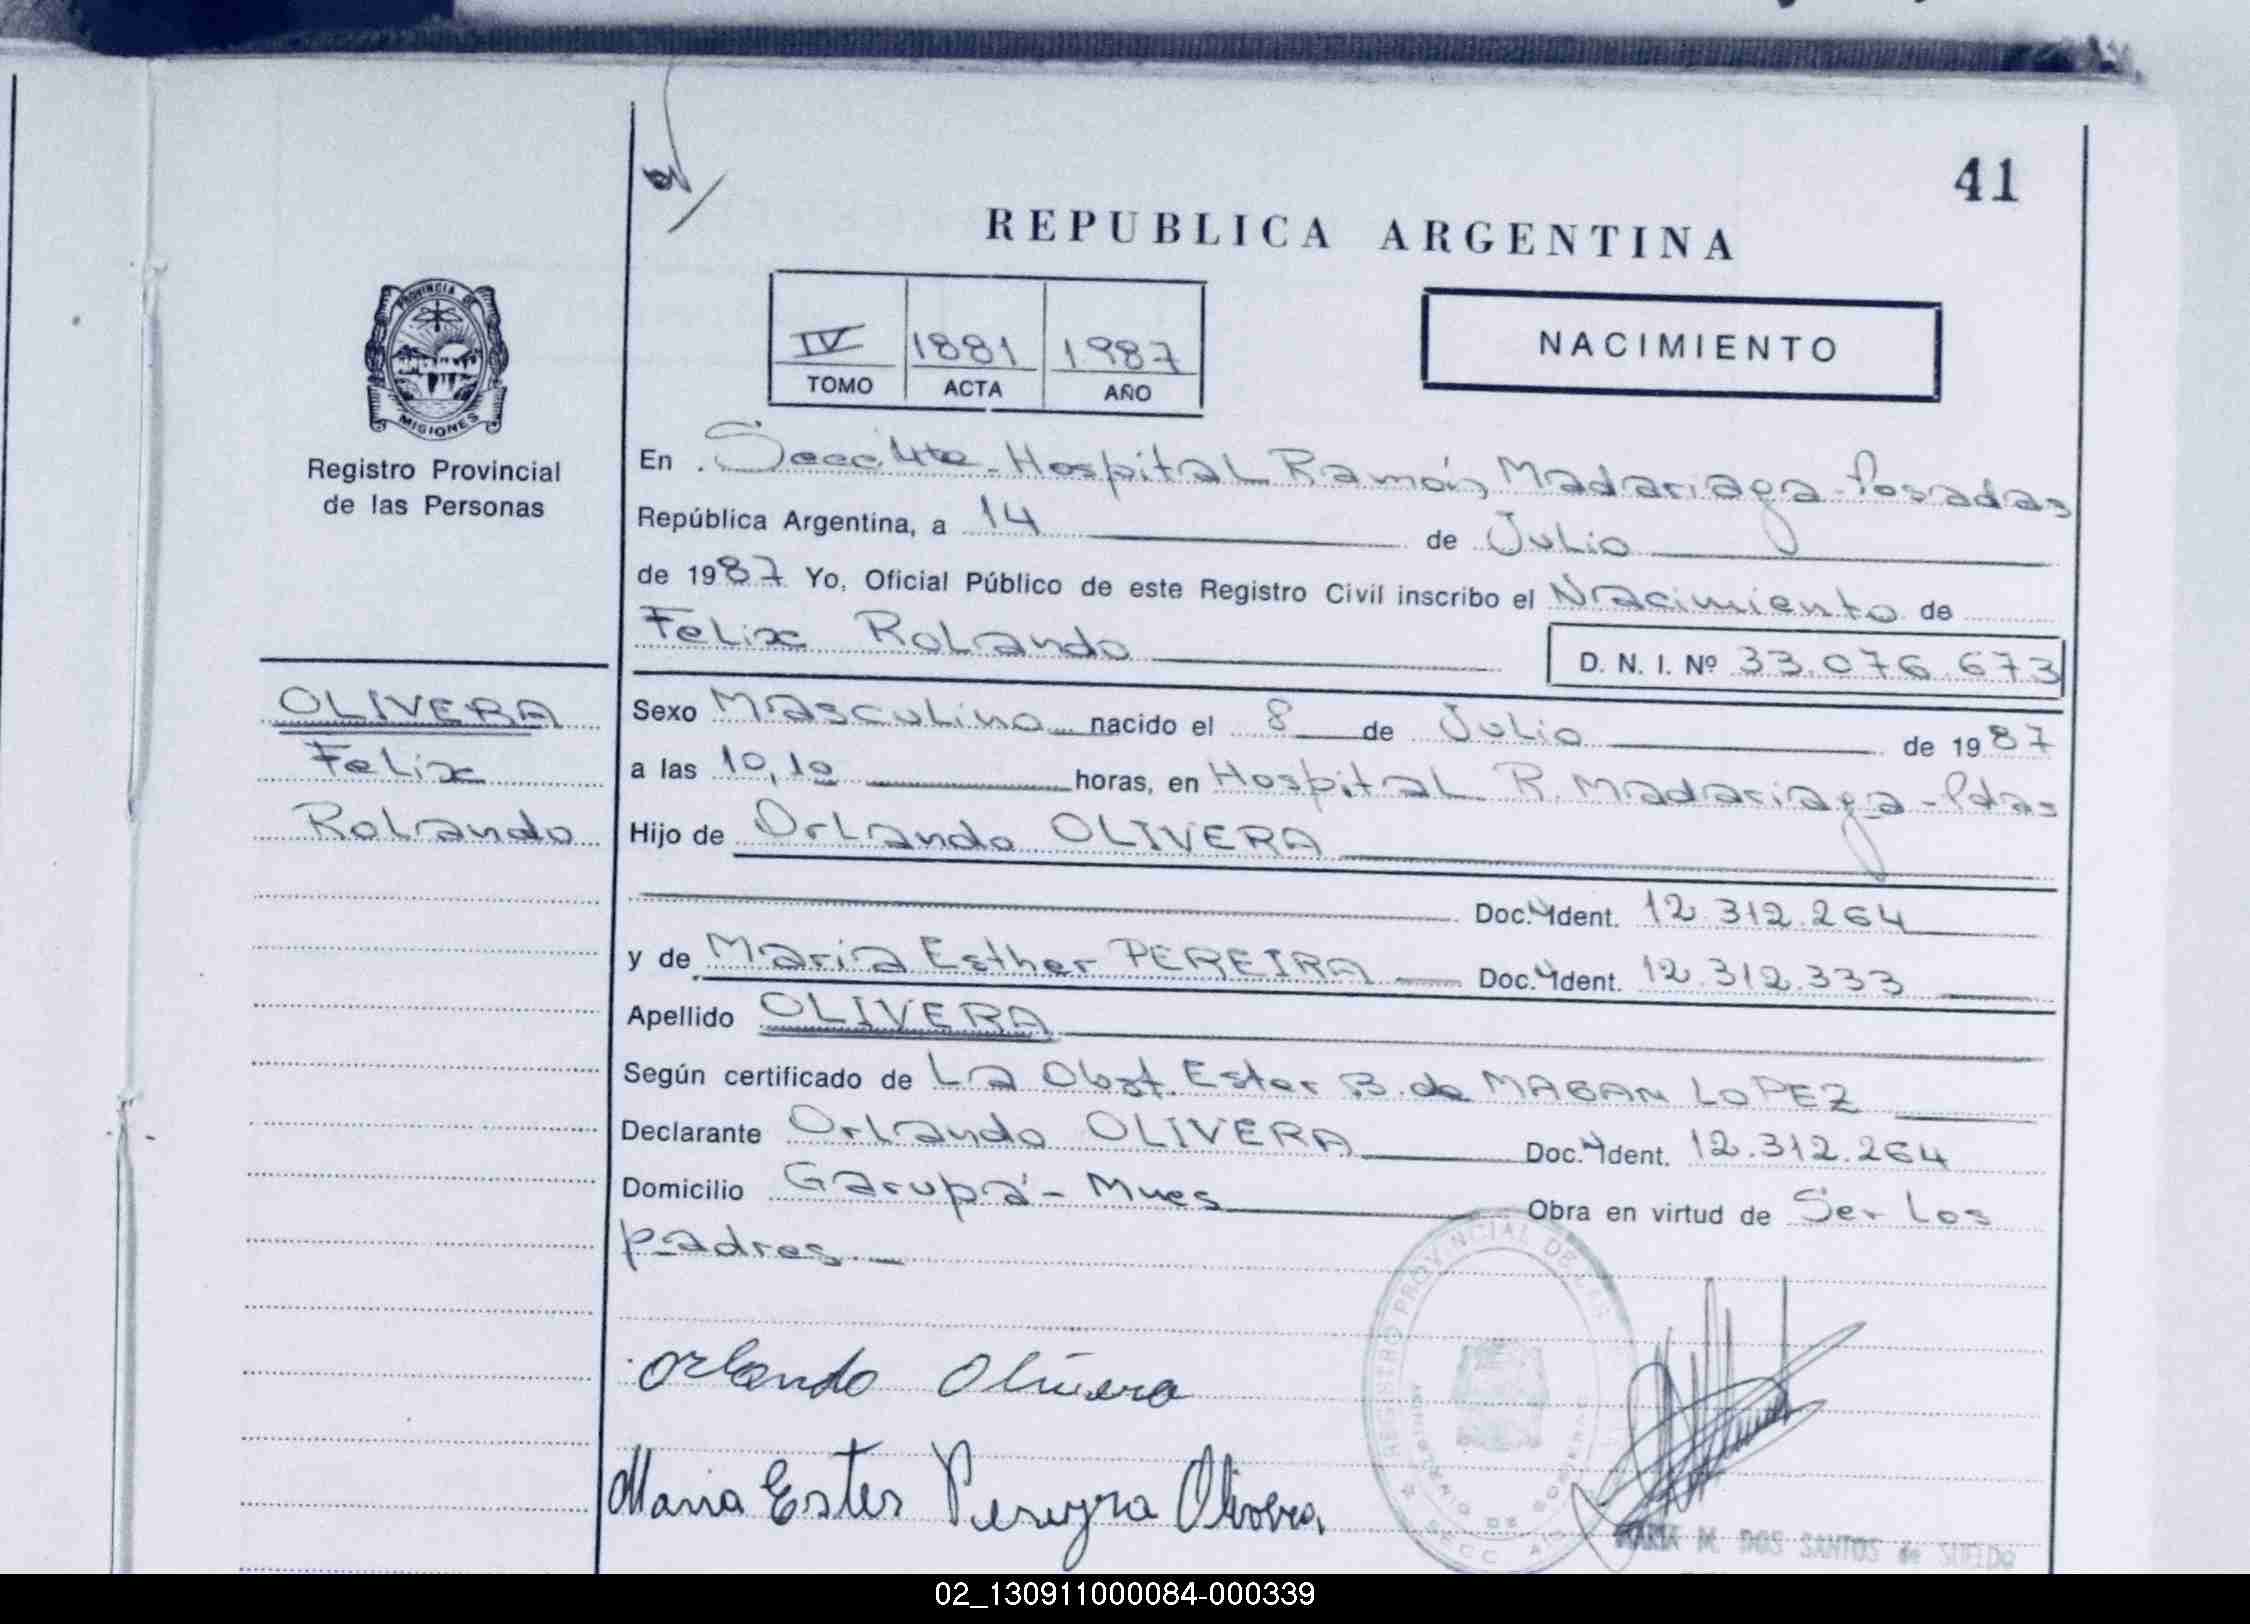 41
REPUBLICA ARGENTINA
IV 1881 1987
TOMO ACTA AÑO
NACIMIENTO
PROVINCIA DE
MISIONES
Registro Provincial
de las Personas
En Secc. 4ta - Hospital Ramón Madariaga - Posadas
República Argentina, a 14 de Julio
de 1987 Yo, Oficial Público de este Registro Civil inscribo el Nacimiento de
Felix Rolando
D. N. I. Nº 33.076.673
OLIVERA
Felix
Rolando
Sexo Masculino nacido el 8 de Julio de 1987
a las 10,10 horas, en Hospital R. Madariaga - Pdas
Hijo de Orlando OLIVERA
Doc. Ident. 12.312.264
y de Maria Esther PEREIRA Doc. Ident. 12.312.333
Apellido OLIVERA
Según certificado de La Obst. Ester B. de MAGAN LOPEZ
Declarante Orlando OLIVERA Doc. Ident. 12.312.264
Domicilio Garupá - Mnes Obra en virtud de Ser Los
padres
Orlando Olivera
Maria Ester Pereyra Olivera
REGISTRO PROVINCIAL DE LAS
MINISTERIO DE GOBIERNO
SECC
MARIA M. DOS SANTOS de SUELDO
02_130911000084-000339